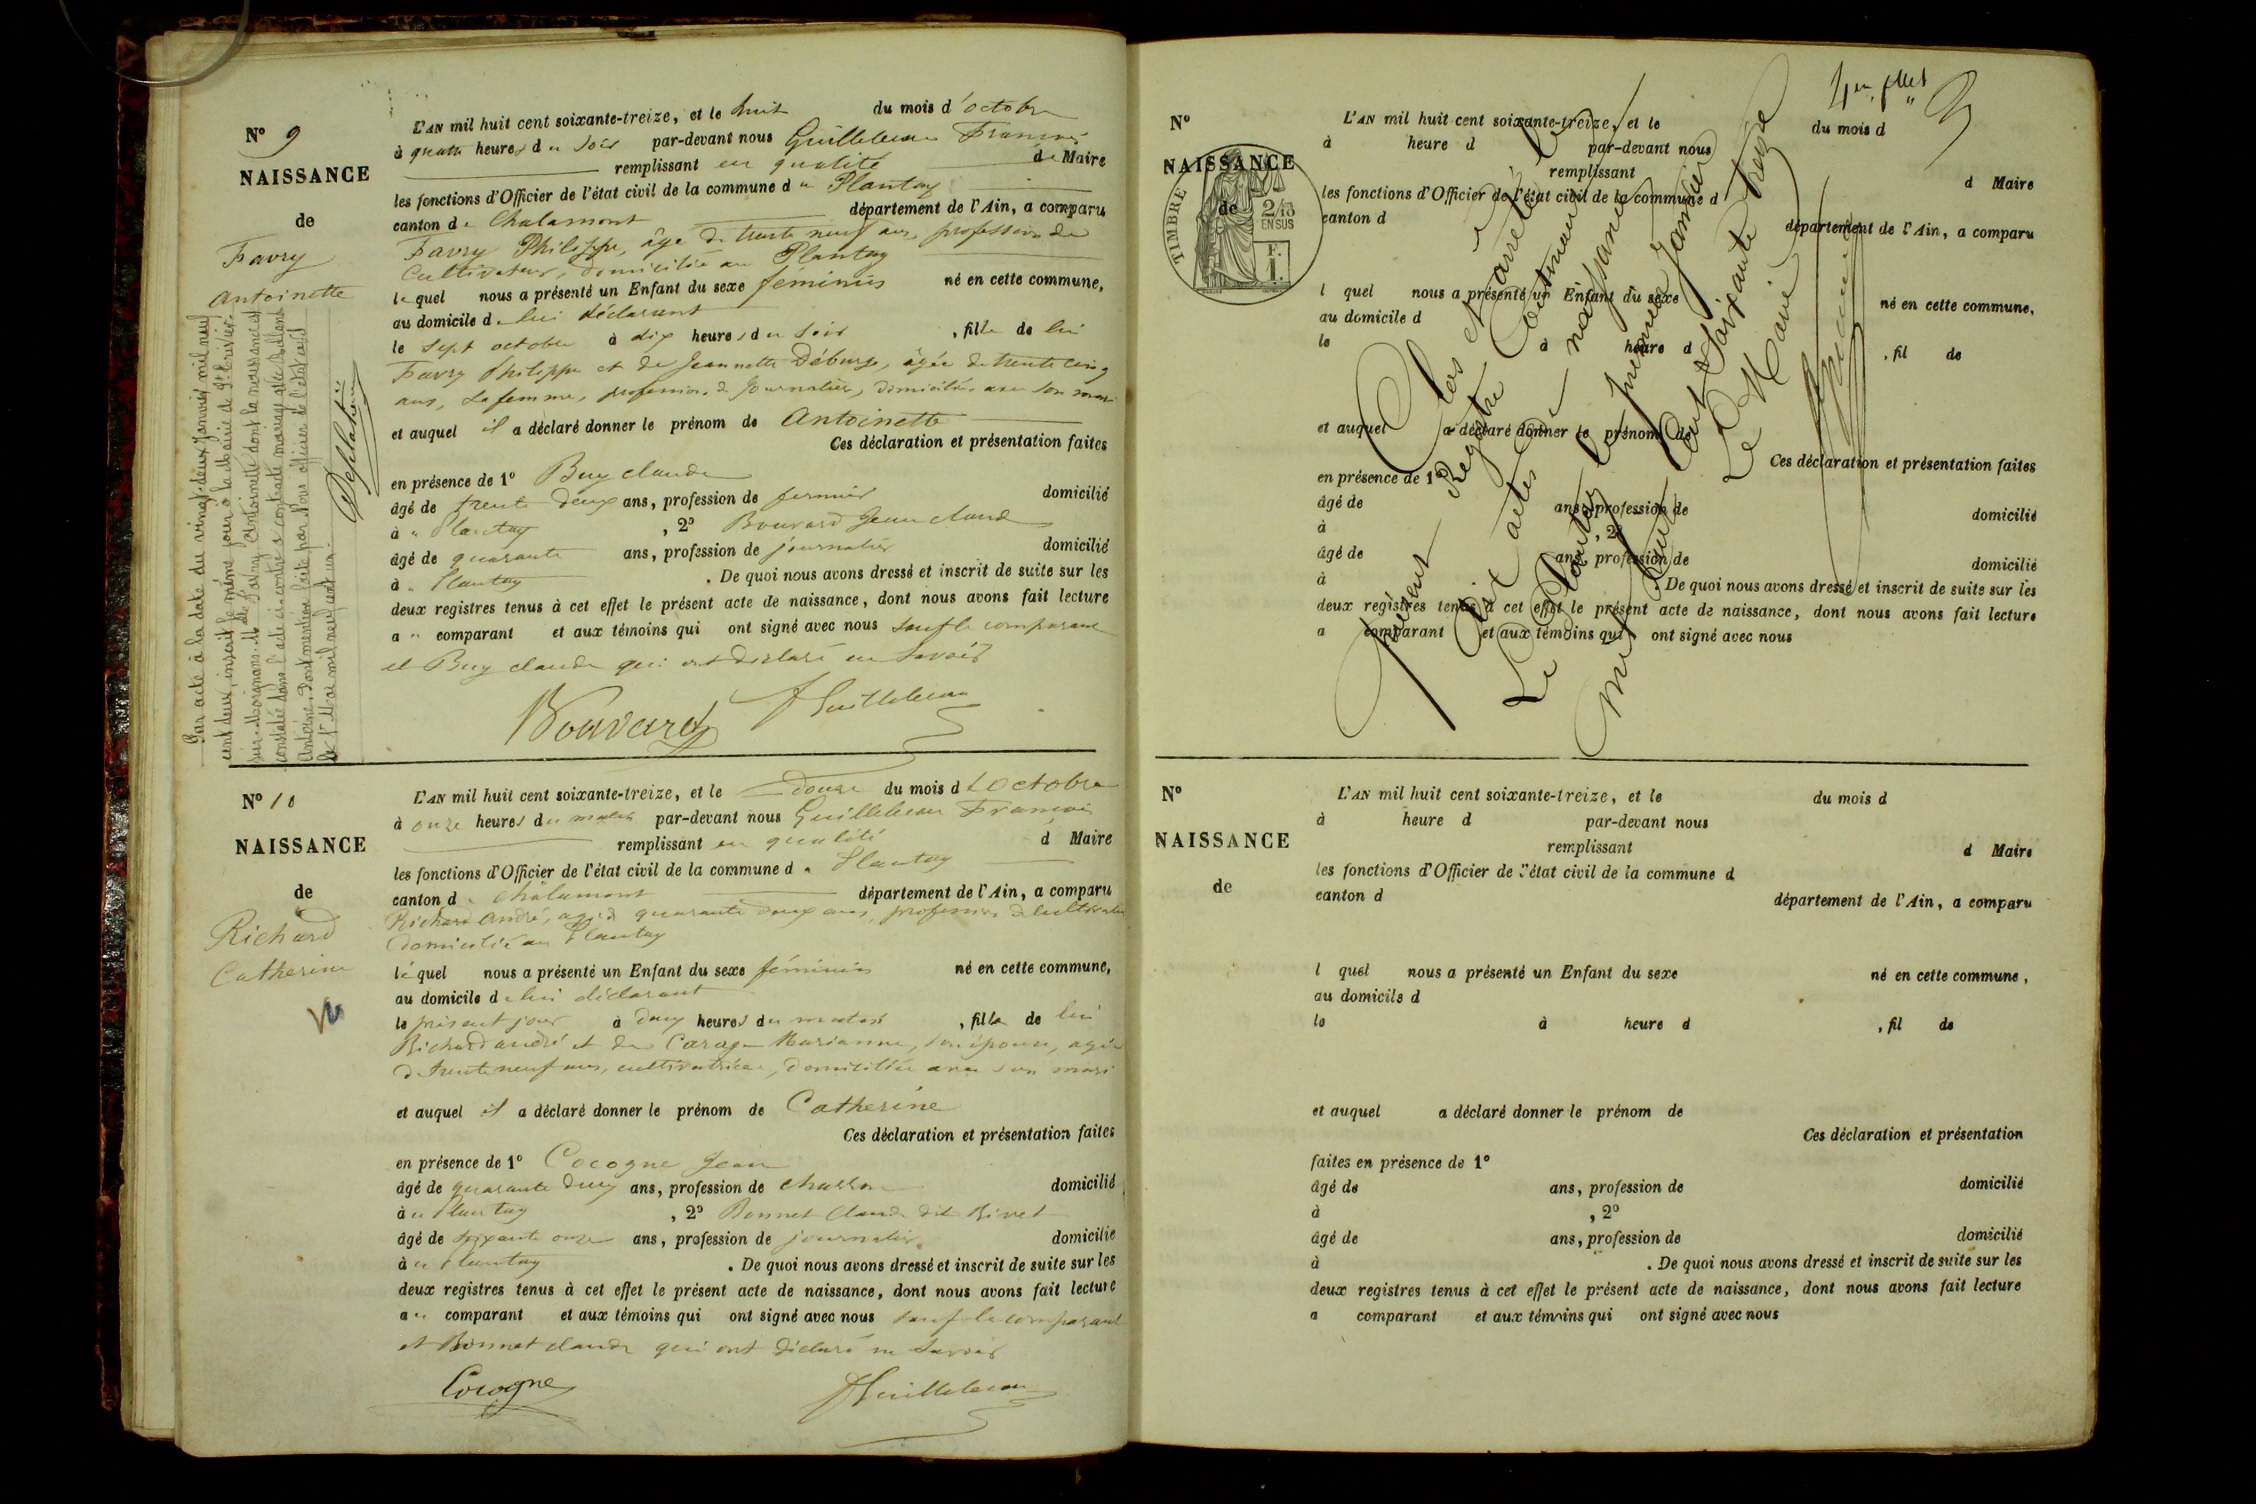 N° 9
NAISSANCE
de
Favry
Antoinette
Par acte à la date du vingt-deux Janvier mil neuf
cent deux, inscrit le même jour à la Mairie de St Trivier-
sur-Moignans, Mlle Favry Antoinette dont la naissance est
constatée dans l'acte ci-contre a contracté mariage avec
Antoine. Dont mention faite par Nous officier de l'état civil
le 1er Mai mil neuf cent
L'AN mil huit cent soixante-treize, et le huit du mois d'octobre
à quatre heures du soir par-devant nous Guillebeau François
remplissant en qualité de Maire
les fonctions d'Officier de l'état civil de la commune du Plantay
canton de Chalamont département de l'Ain, a comparu
Favry Philippe, âgé de trente neuf ans, profession de
Cultivateur, domicilié au Plantay
lequel nous a présenté un Enfant du sexe féminin né en cette commune,
au domicile de lui déclarant
le sept octobre à dix heures du soir, fille de lui
Favry Philippe et de Jeannette Déburge, âgée de trente cinq
ans, sa femme, profession de Journalière, domiciliée avec son mari
et auquel il a déclaré donner le prénom de Antoinette
Ces déclaration et présentation faites
en présence de 1° Buy claude
âgé de trente deux ans, profession de fermier domicilié
à u Plantay, 2° Bouvard Jean claude
âgé de quarante ans, profession de journalier domicilié
à u Plantay. De quoi nous avons dressé et inscrit de suite sur les
deux registres tenus à cet effet le présent acte de naissance, dont nous avons fait lecture
au comparant et aux témoins qui ont signé avec nous sauf le comparant
et Buy claude qui ont déclaré ne savoir
Bouvard Guillebeau
N° 10
NAISSANCE
de
Richard
Catherine
L'AN mil huit cent soixante-treize, et le douze du mois d'octobre
à onze heures du matin par-devant nous Guillebeau François
remplissant en qualité d Maire
les fonctions d'Officier de l'état civil de la commune du Plantay
canton de Chalamont département de l'Ain, a comparu
Richard André, agé d quarante deux ans, profession d cultivateur
domicilié au Plantay
lequel nous a présenté un Enfant du sexe féminin né en cette commune,
au domicile de lui déclarant
le présent jour à deux heures du matin, fille de lui
Richard andré et de Carage Marianne, son épouse, agée
de trente neuf ans, cultivatrice, domiciliée avec son mari
et auquel il a déclaré donner le prénom de Catherine
Ces déclaration et présentation faites
en présence de 1° Cocogne Jean
âgé de quarante deux ans, profession de charron domicilié
à u Plantay, 2° Bonnet Claude dit Rivet
âgé de soixante onze ans, profession de journalier domicilié
à u Plantay. De quoi nous avons dressé et inscrit de suite sur les
deux registres tenus à cet effet le présent acte de naissance, dont nous avons fait lecture
au comparant et aux témoins qui ont signé avec nous sauf le comparant
et Bonnet claude qui ont déclaré ne savoir
Cocogne Guillebeau
N°
NAISSANCE
de
TIMBRE
2/10
EN SUS
F.
1.
L'AN mil huit cent soixante-treize, et le du mois d
à heure d par-devant nous
remplissant d Maire
les fonctions d'Officier de l'état civil de la commune d
canton d département de l'Ain, a comparu
l quel nous a présenté un Enfant du sexe né en cette commune,
au domicile d
le à heure d, fil de
et auquel a déclaré donner le prénom de
Ces déclaration et présentation faites
en présence de 1°
âgé de ans, profession de domicilié
à, 2°
âgé de ans, profession de domicilié
à. De quoi nous avons dressé et inscrit de suite sur les
deux registres tenus à cet effet le présent acte de naissance, dont nous avons fait lecture
a comparant et aux témoins qui ont signé avec nous
Clos et arrêté le
présent Registre contenant
dix actes de naissance
Le Plantay le premier Janvier
mil huit cent soixante treize
Le Maire
N°
NAISSANCE
de
L'AN mil huit cent soixante-treize, et le du mois d
à heure d par-devant nous
remplissant d Maire
les fonctions d'Officier de l'état civil de la commune d
canton d département de l'Ain, a comparu
l quel nous a présenté un Enfant du sexe né en cette commune,
au domicile d
le à heure d, fil de
et auquel a déclaré donner le prénom de
Ces déclaration et présentation
faites en présence de 1°
âgé de ans, profession de domicilié
à, 2°
âgé de ans, profession de domicilié
à. De quoi nous avons dressé et inscrit de suite sur les
deux registres tenus à cet effet le présent acte de naissance, dont nous avons fait lecture
a comparant et aux témoins qui ont signé avec nous